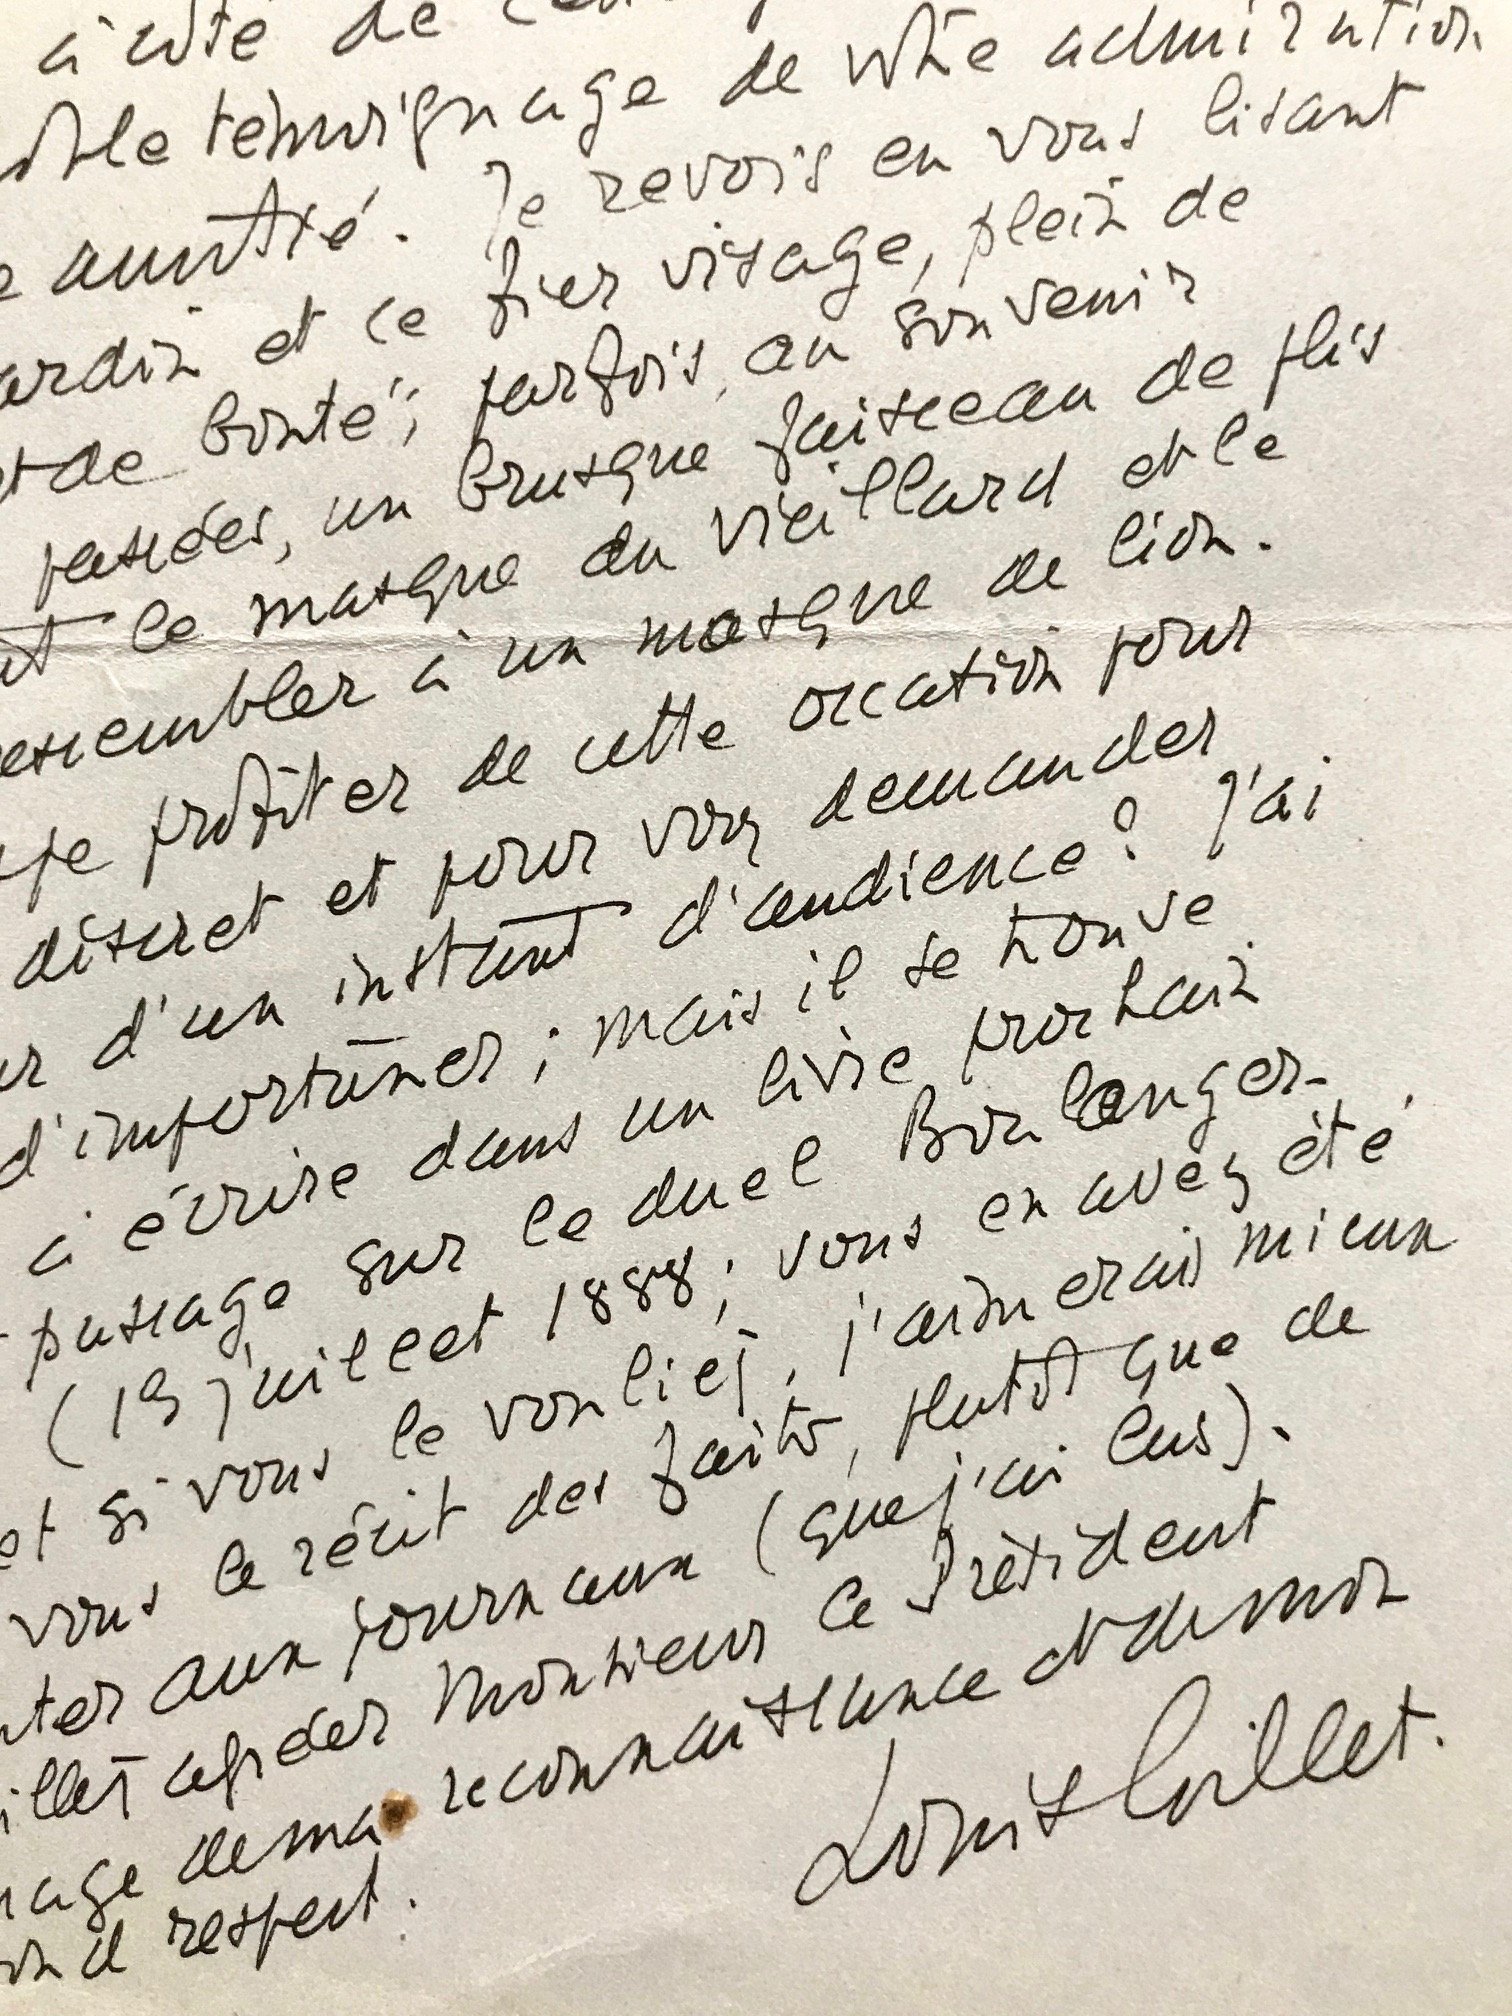 à côté de
témoignage de votre admiration
amitié. Je revois en vous lisant
ardin et ce fier visage, plein de
et de bonté; parfois, au souvenir
passées, un brusque faisceau de plis
le masque du vieillard et le
essembler à un masque de lion.
je profiter de cette occasion pour
discret et pour vous demander
d'un instant d'audience? J'ai
d'importuner; mais il se trouve
à écrire dans un livre prochain
passage sur le duel Boulanger-
(13 juillet 1888; vous en avez été
et si vous le vouliez, j'aimerais mieux
vous le récit des faits, plutôt que de
nter aux journaux (que j'ai lus).
illez agréer Monsieur le Président
nage de ma reconnaissance et de mon
ond respect.
Louis Gillet.